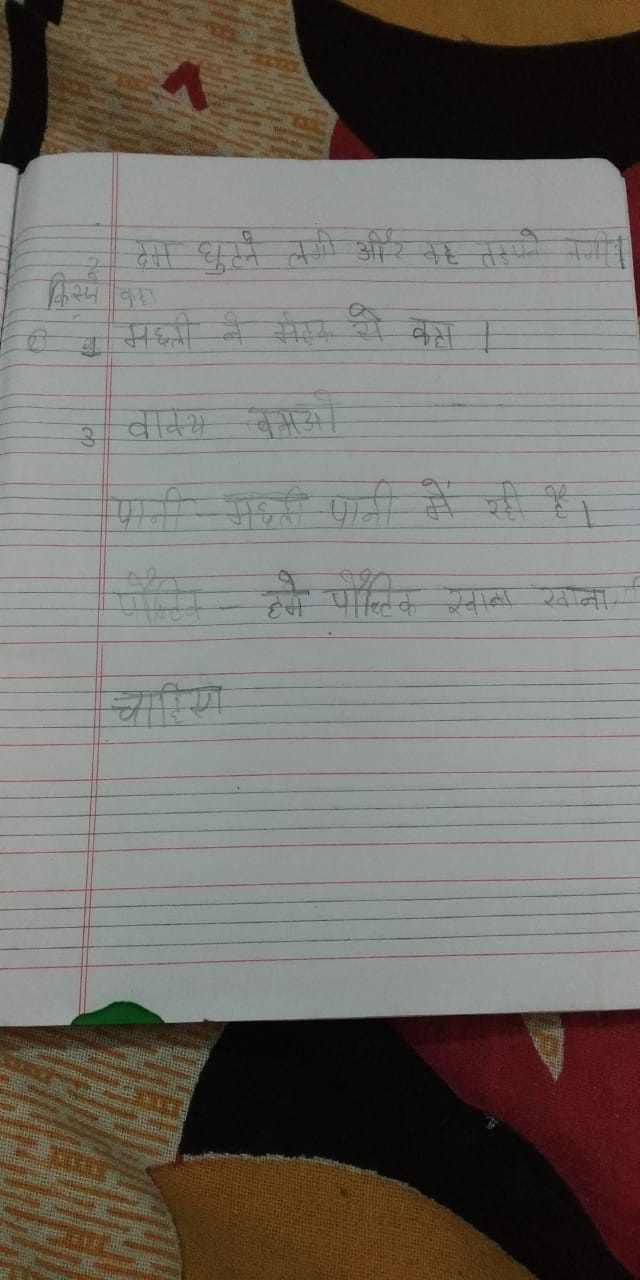 दम घुटने लगी और वह तडपने लगी।
2
किसने कहा
मछली ने मेंढक से कहा।
3 वाक्य बनाओ
पानी - मछली पानी में रही है।
पौष्टिक - हमे पौष्टिक खाना खाना
चाहिए